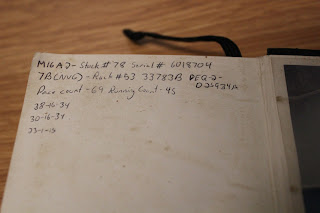 M16A2 - Stock # 78 Serial # 6018704
7B(NVG) - Rack # 53 33783B PEQ-2-
Pace count - 64 Running Count - 45
38-16-34
30-16-34
23-1-13